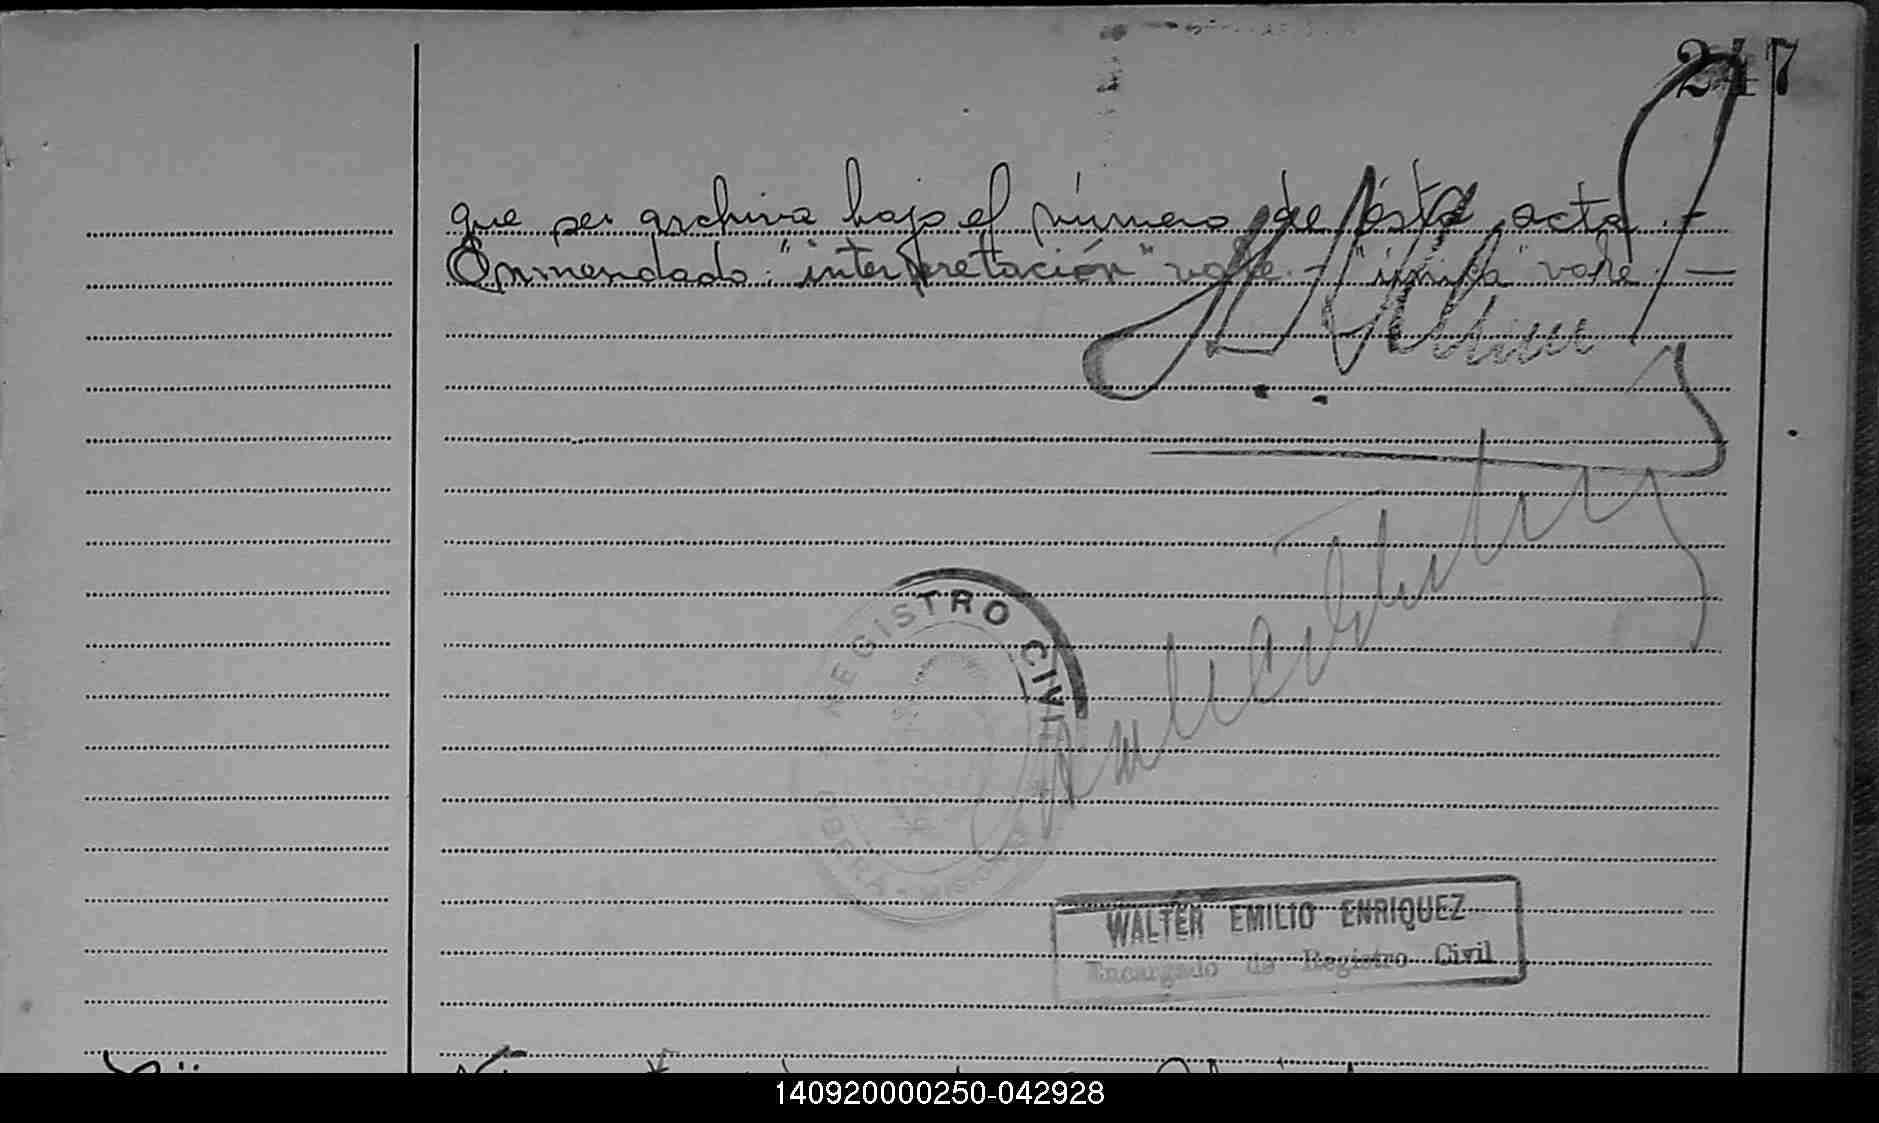 247
que se archiva bajo el número de ésta acta.-
Enmendado: "interpretación" vale.- "única" vale.-
REGISTRO CIVIL
OBERA - MISIONES
WALTER EMILIO ENRIQUEZ
Encargado de Registro Civil
140920000250-042928